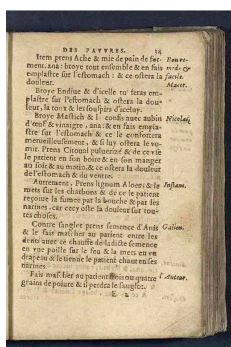 DES PAVVRES. 34
Item prens Ache & mie de pain de for-
ment, ana: broye tout ensemble & en fais
emplastre sur l'estomach: & ce ostera la
douleur.
Broye Endiue & d'icelle tu feras em-
plastre sur l'estomach & ostera la dou-
leur, la toux & les souspirs d'iceluy.
Broye Mastich & l' auec aubin
d'œuf & vinaigre, ana: & en fais empla-
stre sur l'estomach & ce le confortera
merueilleusement, & si luy ostera le vo-
mir. Prens Citoual puluerizé & de ce vse
le patient en son boire & en son manger
au soir & au matin: & ce ostera la douleur
de l'estomach & du ventre.
Autrement. Prens lignum Aloes: & le
mets sur les charbons & de ce le patient
reçoiue la fumee par la bouche & par les
narines, car cecy oste la douleur sur tou-
tes choses.
Contre sanglot prens semence d'Anis
& le fais mascher au patient entre les
dents auec ce chauffe de la dicte semence
en vne paille sur le feu & la mets en vn
drapeau & le tienne le patient chaut en ses
narines.
Fais mascher au patient trois ou quatre
grains de poiure & il perdra le sanglot.
E 2
facile.
Macer.
Nicolas.
Instant.
Galien.
L'Auteur.